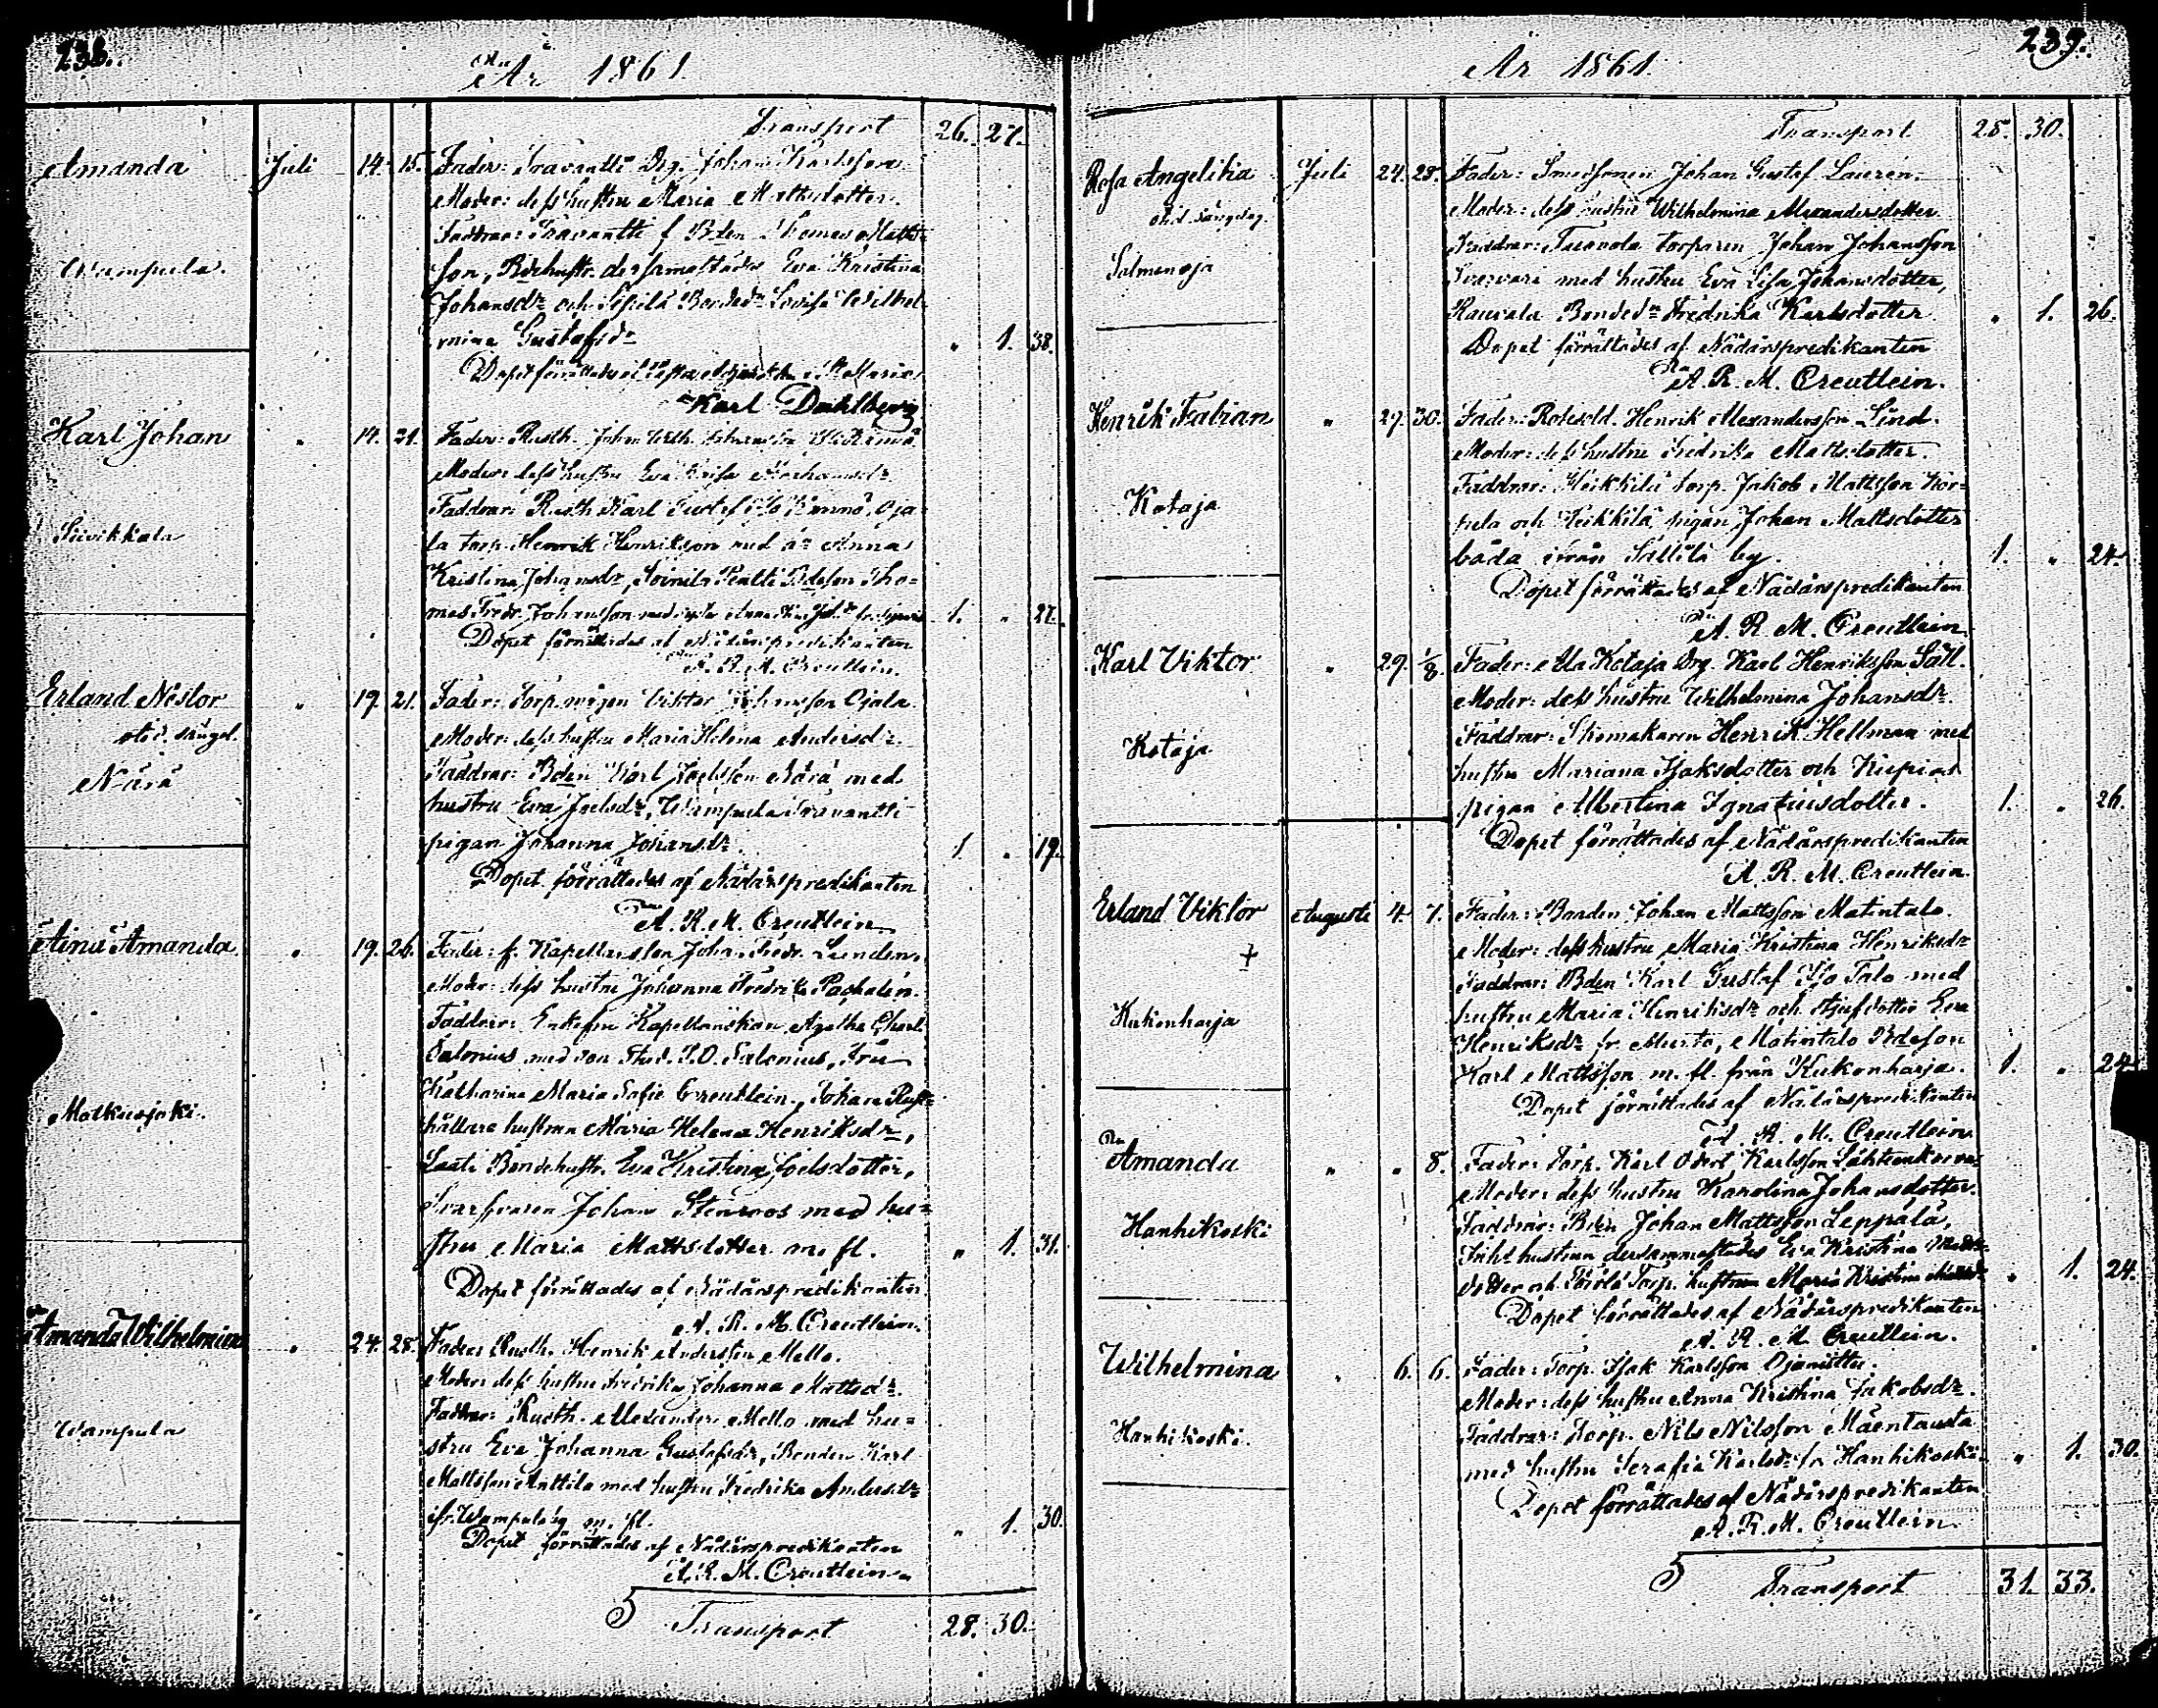 236.
År 1861
Transport 26. 27.
Amanda Juli 14. 15. Fader: Travantti Drg. Johan Karlsson
Moder: dess hustru Maria Mattsdotter.
Faddrar: Travantti f. Bden Thomas Matts-
Wampula.
son, Bdehustr. dersammastädes Eva Kristina
Johansdr och Bondedr Lovisa Wilhel-
mina Gustafsdr „ 1. 38.
Dopet förrättades af
Karl Dahlberg
Karl Johan „ 14. 21. Fader: Rusth. Johan
Moder: dess hustru Eva
Faddrar: Rusth. Karl Gustaf Oja-
Sievikkala
la torp. Henrik Henriksson med Anna
Kristina Johansdr, Pentti Bdeson Tho-
mas Fredr. Johansson med 1. „ 27.
Dopet förrättades af Nådårspredikanten
A. R. M. Creutlein.
Erland Nestor „ 19. 21. Fader: Torp.mågen Viktor Johansson Ojala.
Moder: dess hustru Maria Helena Andersdr.
Faddrar: Bden Karl Joelsson Närä med
Närä
hustru Eva Joelsdr, Wampula Travantti
pigan Johanna Johansdr. 1 „ 19.
Dopet förrättades af Nådårspredikanten
A. R. M. Creutlein
Aina Amanda. „ 19. 26. Fader: f. Kapellansson Johan Fredr. Lindén.
Moder: dess hustru Johanna Fredrika Pachalén.
Faddrar: Enkefru Kapellanskan Agatha Charl.
Salonius med son Stud. Salonius, Fru
Katharina Maria Sofie Creutlein, Rust-
Matkusjoki.
hållare hustrun Maria Helena Henriksdr,
Bondehustr. Eva Kristina Joelsdotter,
Svarfvaren Johan Stenroos med hu-
stru Maria Mattsdotter m. fl. „ 1. 31.
Dopet förrättades af Nådårspredikanten
A. R. M. Creutlein.
Amanda Wilhelmina „ 24. 28. Fader: Rusth. Henrik Andersson Mello.
Moder: dess hustru Fredrika Johanna Mattsdr.
Faddrar: Rusth. Alexander Mello med hu-
Wampula
stru Eva Johanna Gustafsdr, Bonden Karl
Mattsson Anttila med hustru Fredrika Andersdr
ifr. Wampula by m. fl. „ 1. 30.
Dopet förrättades af Nådårspredikanten
A. R. M. Creutlein
5 Transport 28. 30.
237.
År 1861.
Transport 28. 30.
Rosa Angelika Juli 24. 28. Fader: Smedsonen Johan Gustaf Laurén.
Moder: dess hustru Wilhelmina Alexandersdotter
Faddrar: torparen Johan Johansson
Salmenoja
med hustru Eva Lisa Johansdotter,
Rauvala Bondedr Fredrika Karlsdotter. „ 1. 26.
Dopet förrättades af Nådårspredikanten
A. R. M. Creutlein.
Henrik Fabian „ 29. 30. Fader: Rotesold. Henrik Alexandersson Lind.
Moder: dess hustru Fredrika Mattsdotter.
Faddrar: Heikkilä torp. Jakob Mattsson Kor-
Kotaja
pela och Heikkilä pigan Johan Mattsdotter
båda ifrån Sallila by. 1. „ 24.
Dopet förrättades af Nådårspredikanten
A. R. M. Creutlein.
Karl Viktor „ 29. 1/8 Fader: Ala Kotaja Drg. Karl Henriksson Säll.
Moder: dess hustru Wilhelmina Johansdr.
Faddrar: Skomakaren Henrik Hellman med
Kotaja
hustru Mariana Isaksdotter och
pigan Albertina Ignatiusdotter. 1. „ 26.
Dopet förrättades af Nådårspredikanten
A. R. M. Creutlein.
Erland Viktor Augusti 4. 7. Fader: Bonden Johan Mattsson Matintalo.
+
Moder: dess hustru Maria Kristina Henriksdr
Faddrar: Bden Karl Gustaf Iso Talo med
Kukonharja
hustru Maria Henriksdr och Eva
Henriksdr fr. Matintalo Bdeson
Karl Mattsson m. fl. från Kukonharja. 1. „ 24
Dopet förrättades af Nådårspredikanten
A. R. M. Creutlein
Amanda „ „ 8. Fader: Torp. Karl Karlsson
Moder: dess hustru Karolina Johansdotter.
Faddrar: Bden Johan Mattsson Leppälä,
Hanhikoski
hustrun dersammastädes Eva Kristina Matts-
dotter och Torp. hustrun Maria Kristina „ 1. 24.
Dopet förrättades af Nådårspredikanten
A. R. M. Creutlein.
Wilhelmina „ 6. 6. Fader: Torp. Isak Karlsson Ojaniittu.
Moder: dess hustru Anna Kristina Jakobsdr.
Faddrar: Torp. Nils Nilsson Mäentausta
Hanhikoski.
med hustru Serafia Karlsdr fr Hanhikoski. „ 1. 30.
Dopet förrättades af Nådårspredikanten
A. R. M. Creutlein
5 Transport 31. 33.